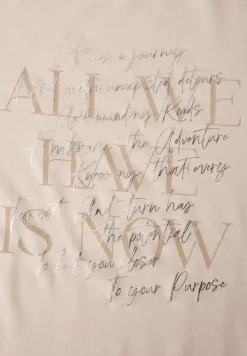 Life is a journey
filled with unexpected detours
And winding Roads
ALL WE
Embrace the Adventure
HAVE
Knowing that every
turn has
IS NOW
the potential
to closer
to your Purpose